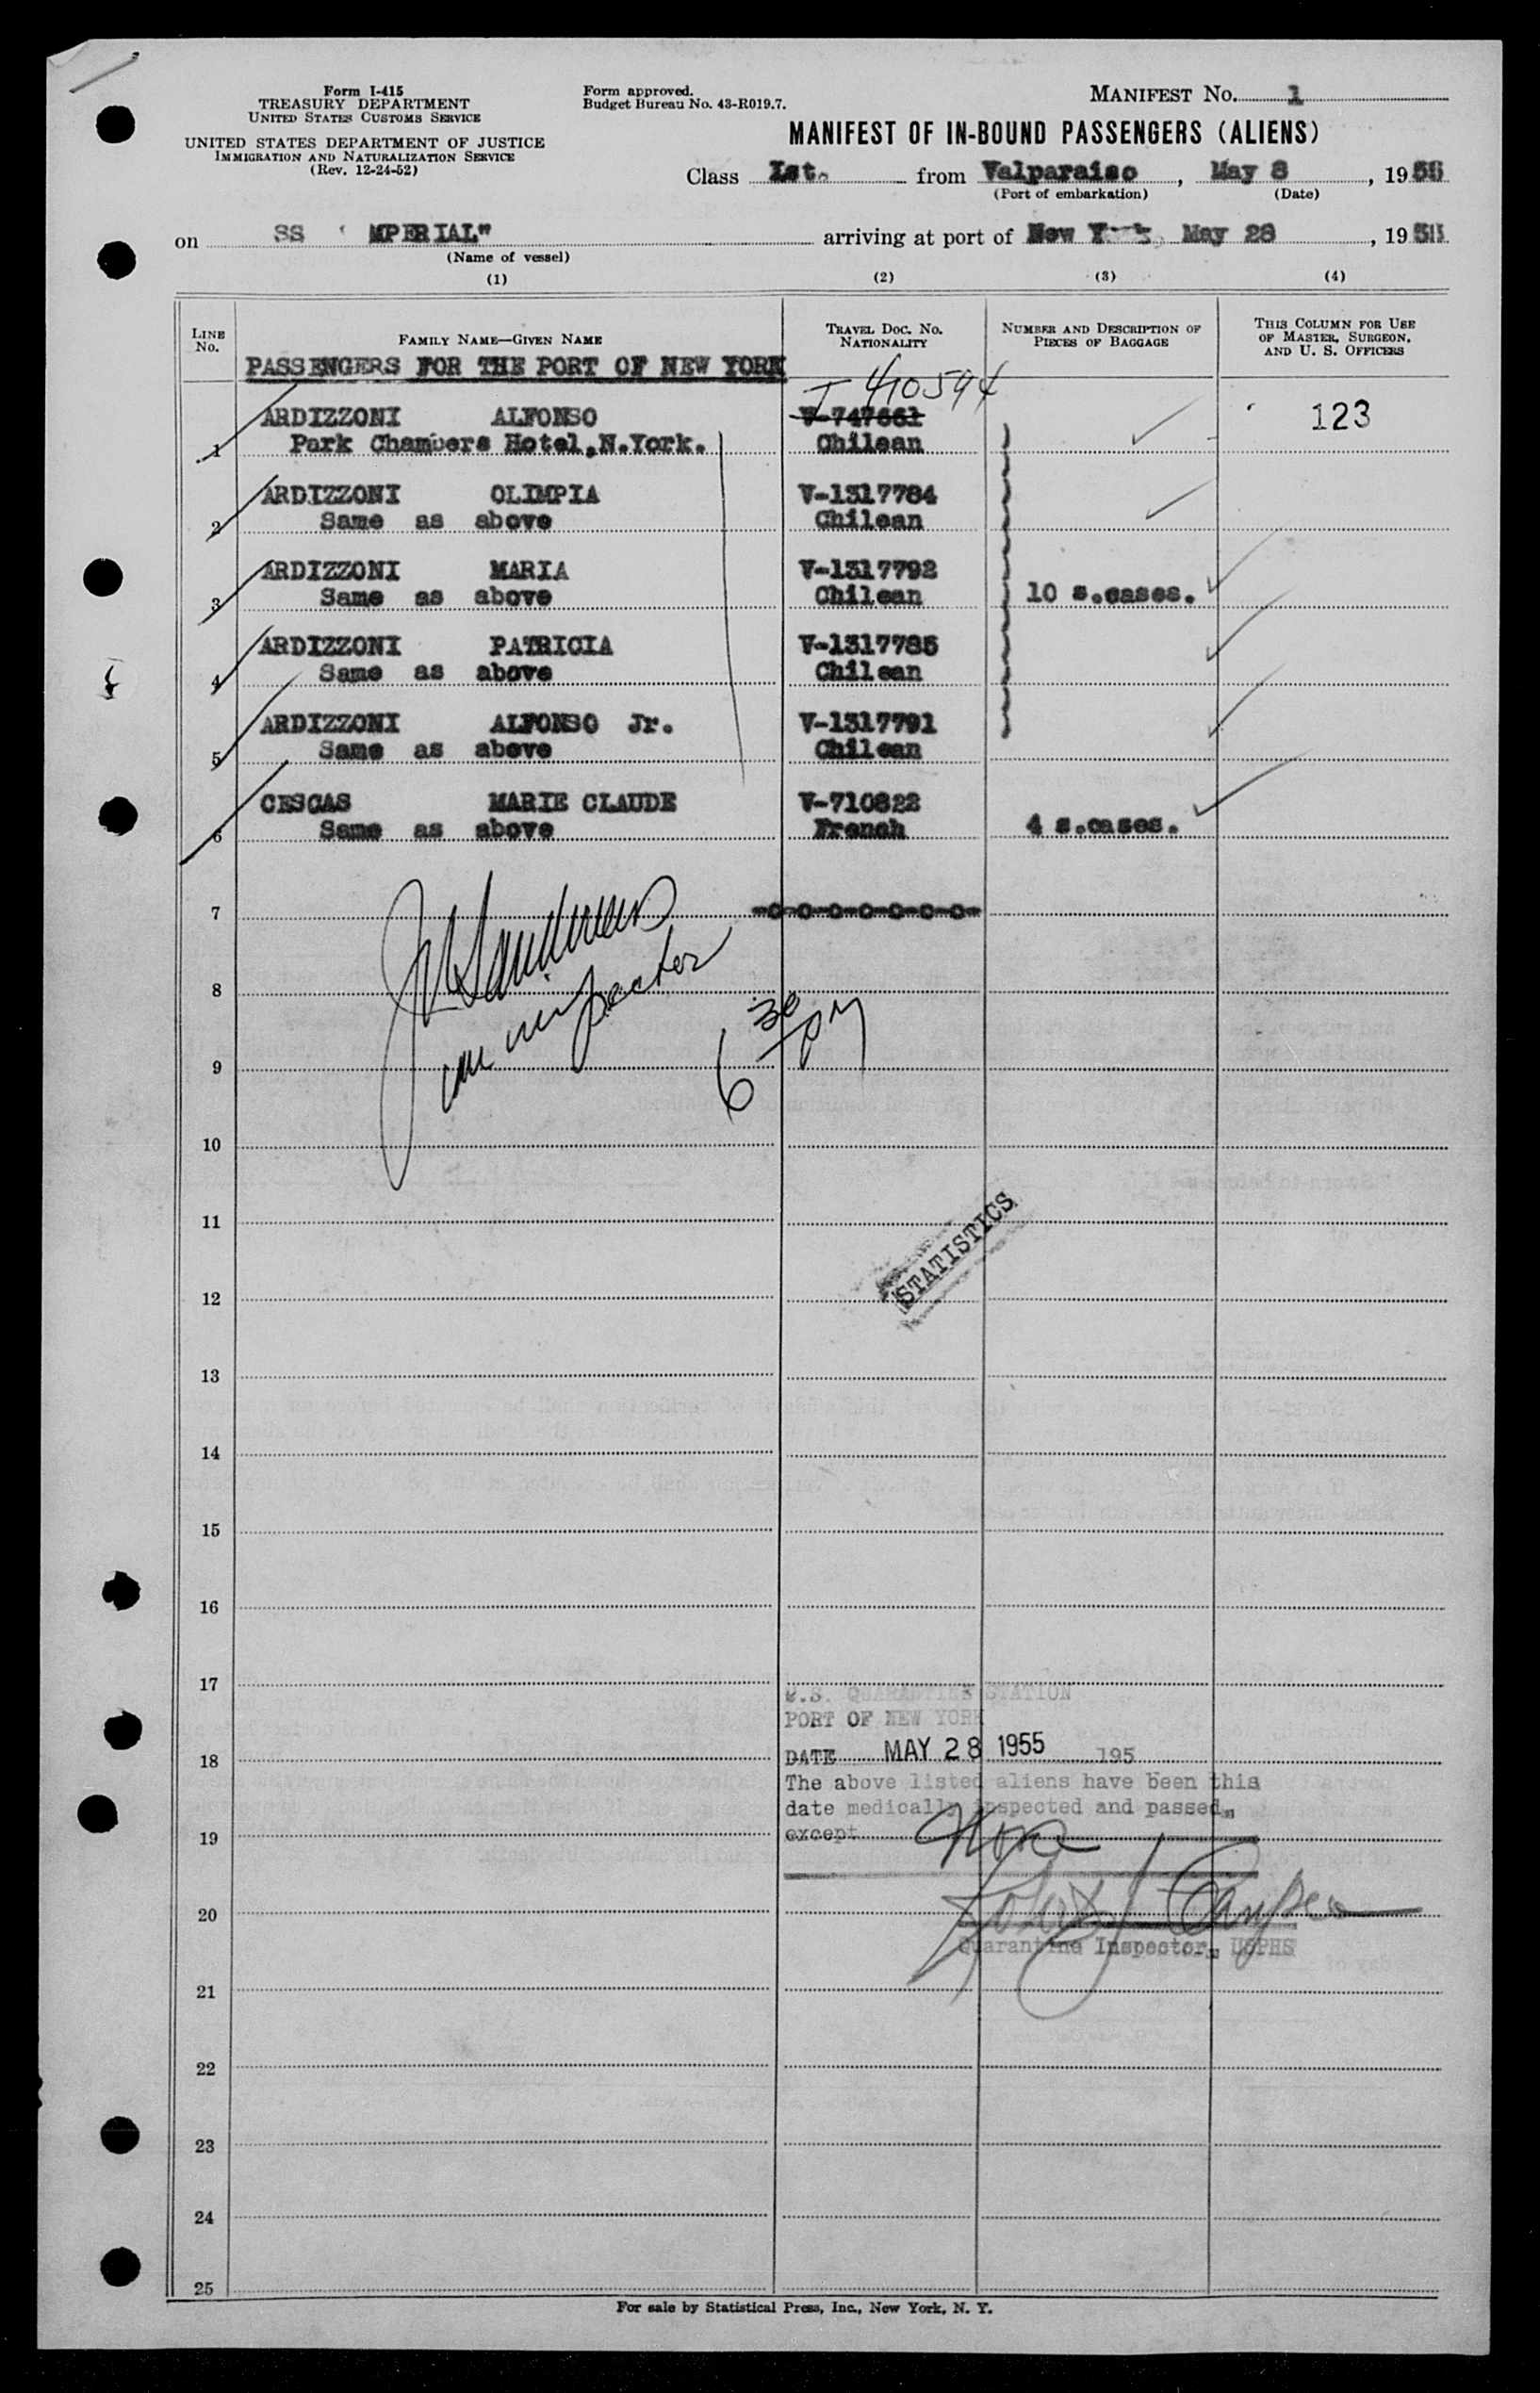 Form I-415
TREASURY DEPARTMENT
UNITED STATES CUSTOMS SERVICE
UNITED STATES DEPARTMENT OF JUSTICE
IMMIGRATION AND NATURALIZATION SERVICE
(Rev. 12-24-52)
Form approved.
Budget Bureau No. 43-R019.7.
MANIFEST NO. 1
MANIFEST OF IN-BOUND PASSENGERS (ALIENS)
Class Ist. from Valparaiso, May 8, 1955
(Port of embarkation) (Date)
on SS MPERIAL" arriving at port of New York, May 28, 195
(Name of vessel)
(1) (2) (3) (4)
LINE NO. FAMILY NAME—GIVEN NAME TRAVEL DOC. NO. NATIONALITY NUMBER AND DESCRIPTION OF PIECES OF BAGGAGE THIS COLUMN FOR USE OF MASTER, SURGEON, AND U. S. OFFICERS
PASSENGERS FOR THE PORT OF NEW YORK
I 410594
ARDIZZONI ALFONSO V-747661 123
1 Park Chambers Hotel,N.York. Chilean
ARDIZZONI OLIMPIA V-1317784
2 Same as above Chilean
ARDIZZONI MARIA V-1317792
3 Same as above Chilean 10 s.cases.
ARDIZZONI PATRICIA V-1317785
4 Same as above Chilean
ARDIZZONI ALFONSO Jr. V-1317791
5 Same as above Chilean
CESCAS MARIE CLAUDE V-710822
6 Same as above French 4 s.cases.
7 -o-o-o-o-o-o-o-
8
inspector
6 30 PM
9
10
11
STATISTICS
12
13
14
15
16
17
U.S. QUARANTINE STATION
PORT OF NEW YORK
18 DATE MAY 28 1955 195
The above listed aliens have been this
date medically inspected and passed,
19 except None
20
Quarantine Inspector, USPHS
21
22
23
24
25
For sale by Statistical Press, Inc., New York, N. Y.